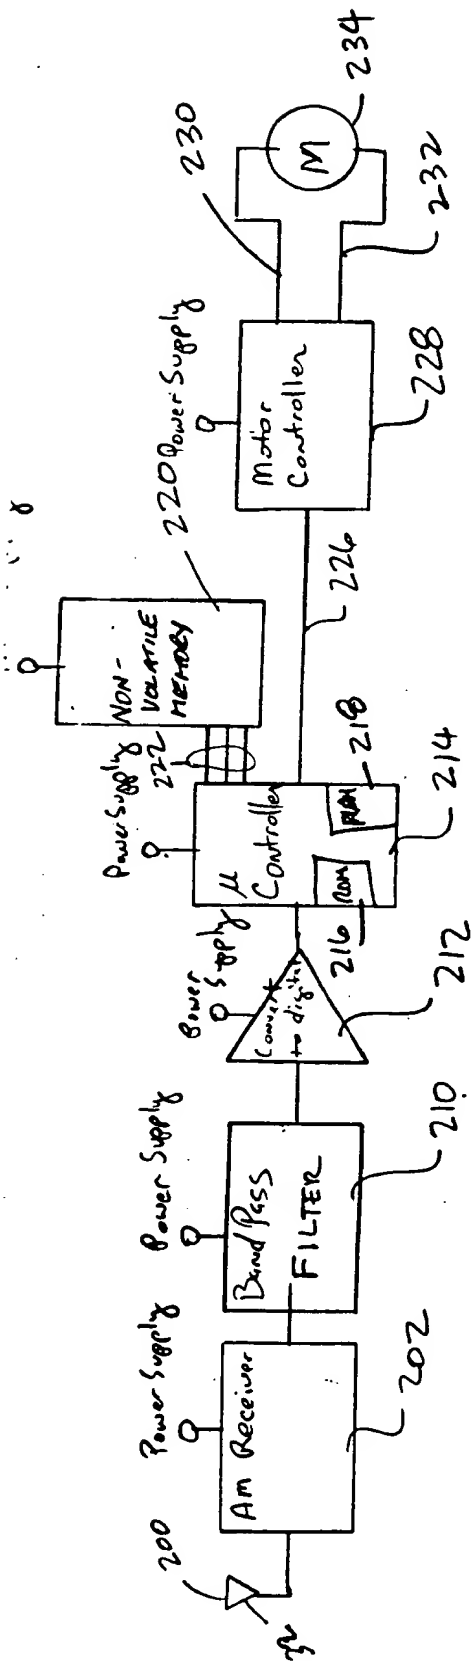 200
32
Power Supply
Am Receiver
202
Power Supply
Band Pass
FILTER
210
Power
Supply
Convert
to digital
212
Power Supply
μ
Controller
ROM
216
RAM
218
214
222
NON-
VOLATILE
MEMORY
220
226
Power Supply
Motor
Controller
228
230
232
M
234